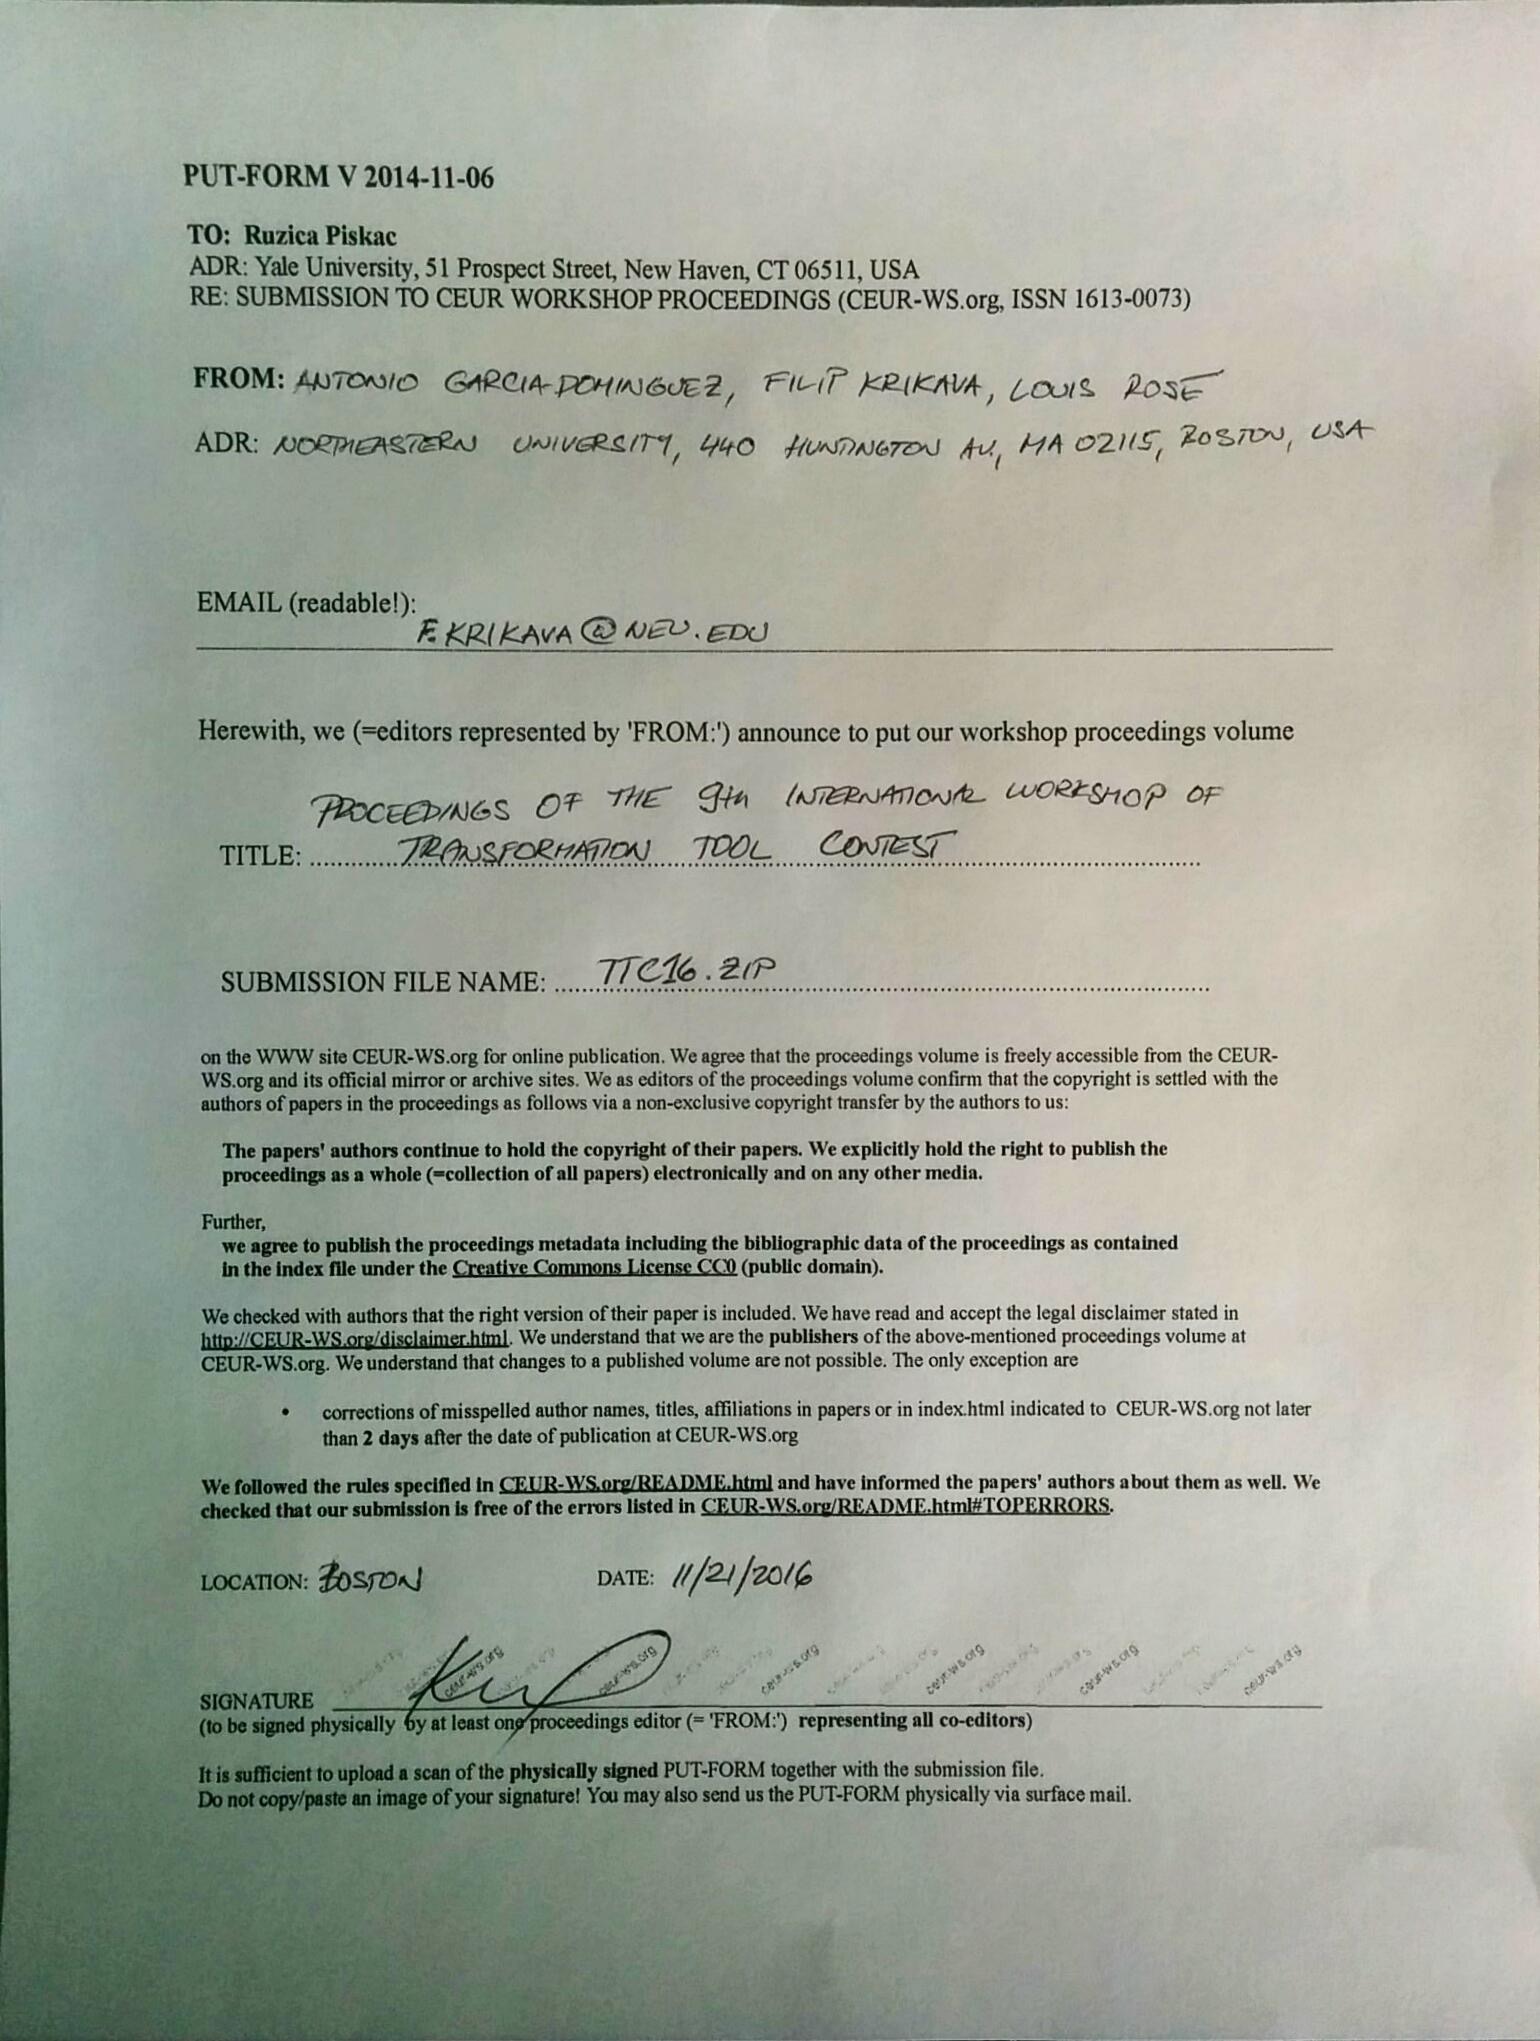 PUT-FORM V 2014-11-06
TO: Ruzica Piskac
ADR: Yale University, 51 Prospect Street, New Haven, CT 06511, USA
RE: SUBMISSION TO CEUR WORKSHOP PROCEEDINGS (CEUR-WS.org, ISSN 1613-0073)
FROM: ANTONIO GARCIA-DOMINGUEZ, FILIP KRIKAVA, LOUIS ROSE
ADR: NORTHEASTERN UNIVERSITY, 440 HUNTINGTON AV., MA 02115, BOSTON, USA
EMAIL (readable!):
F.KRIKAVA@NEU.EDU
Herewith, we (=editors represented by 'FROM:') announce to put our workshop proceedings volume
PROCEEDINGS OF THE 9th INTERNATIONAL WORKSHOP OF
TITLE: TRANSFORMATION TOOL CONTEST
SUBMISSION FILE NAME: TTC16.ZIP
on the WWW site CEUR-WS.org for online publication. We agree that the proceedings volume is freely accessible from the CEUR-
WS.org and its official mirror or archive sites. We as editors of the proceedings volume confirm that the copyright is settled with the
authors of papers in the proceedings as follows via a non-exclusive copyright transfer by the authors to us:
The papers' authors continue to hold the copyright of their papers. We explicitly hold the right to publish the
proceedings as a whole (=collection of all papers) electronically and on any other media.
Further,
we agree to publish the proceedings metadata including the bibliographic data of the proceedings as contained
in the index file under the Creative Commons License CC0 (public domain).
We checked with authors that the right version of their paper is included. We have read and accept the legal disclaimer stated in
http://CEUR-WS.org/disclaimer.html. We understand that we are the publishers of the above-mentioned proceedings volume at
CEUR-WS.org. We understand that changes to a published volume are not possible. The only exception are
• corrections of misspelled author names, titles, affiliations in papers or in index.html indicated to CEUR-WS.org not later
than 2 days after the date of publication at CEUR-WS.org
We followed the rules specified in CEUR-WS.org/README.html and have informed the papers' authors about them as well. We
checked that our submission is free of the errors listed in CEUR-WS.org/README.html#TOPERRORS.
LOCATION: BOSTON DATE: 11/21/2016
ceur-ws.org ceur-ws.org ceur-ws.org ceur-ws.org ceur-ws.org ceur-ws.org
SIGNATURE
(to be signed physically by at least one proceedings editor (= 'FROM:') representing all co-editors)
It is sufficient to upload a scan of the physically signed PUT-FORM together with the submission file.
Do not copy/paste an image of your signature! You may also send us the PUT-FORM physically via surface mail.